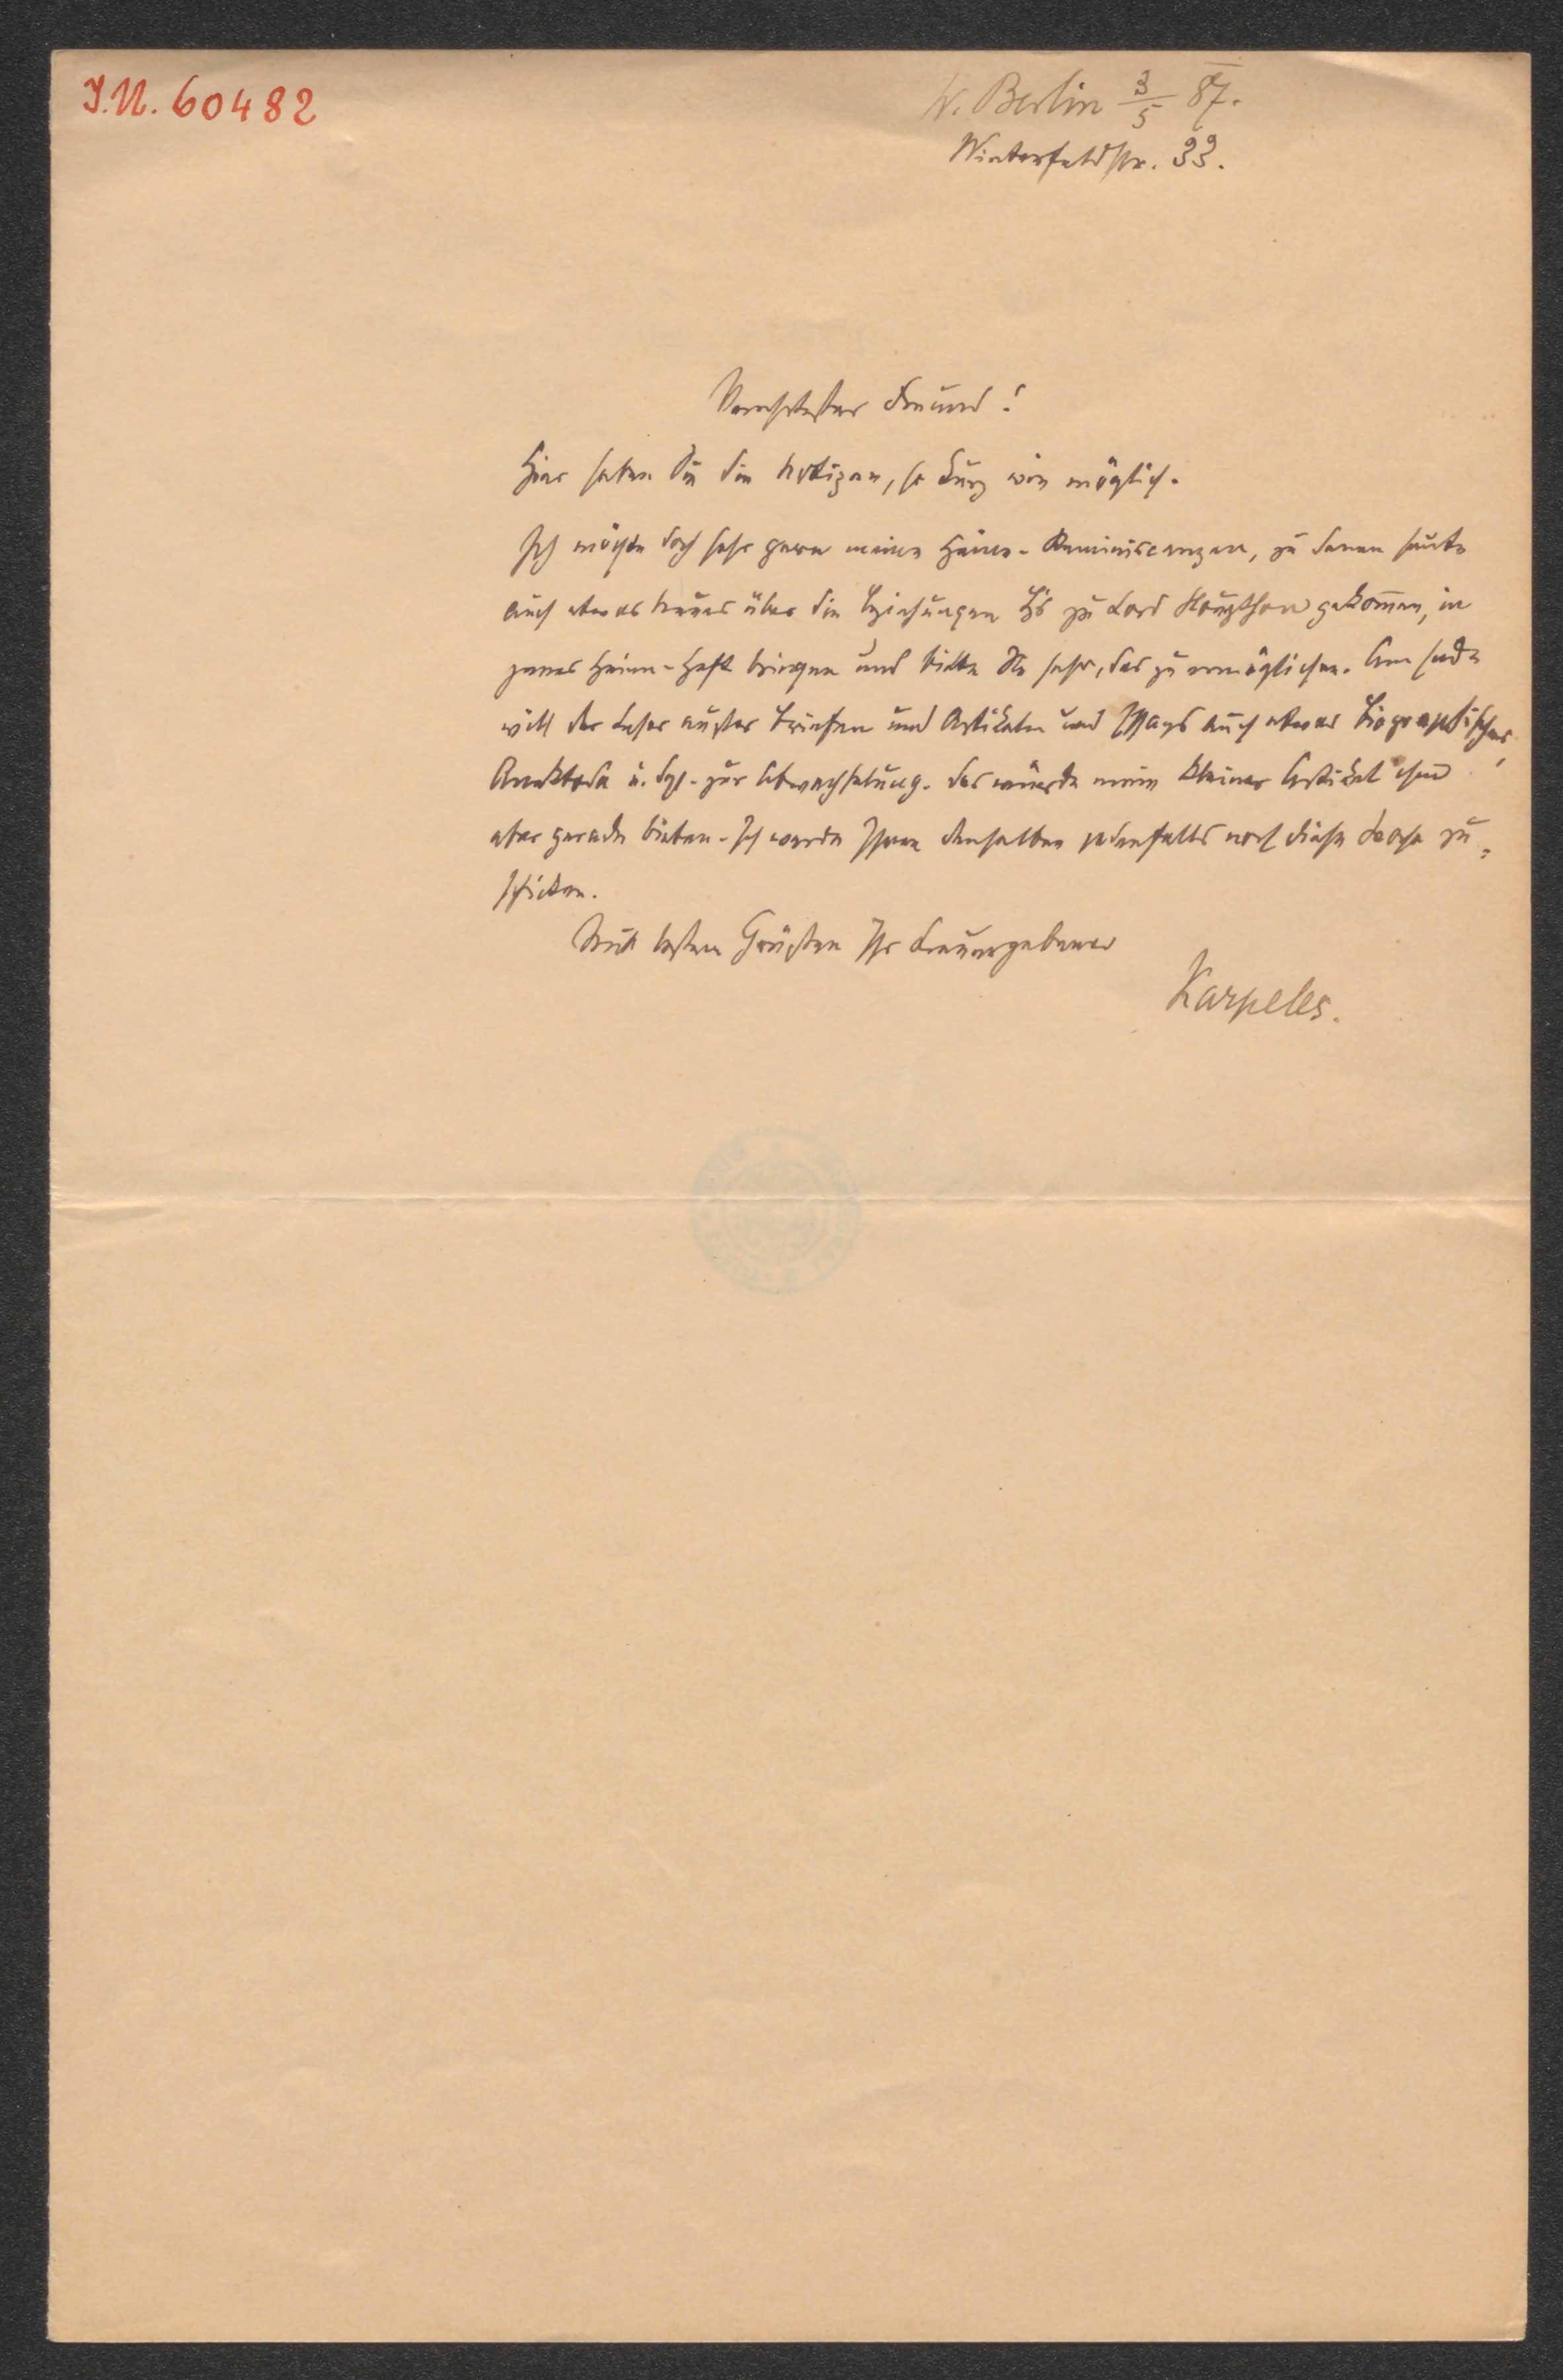 I.N. 60482
W. Berlin 3/5 87.
Winterfeldstr. 33.
Verehrtester Freund!
Hier haben Sie die Notizen, so kurz wie möglich.
Ich möchte doch sehr gern meine Heine-Reminiscenzen, zu denen heute
auch etwas Neues über die Beziehungen H's zu Lord Houghthon gekom̅en, in
jenes Heine-Heft bringen und bitte Sie sehr, das zu ermöglichen. Am Ende
will der Leser außer Briefen und Artikeln und Essays auch etwas Biographisches,
Anektode u. dgl. zur Abwechselung. Das würde mein kleiner Artikel
aber gerade bieten. Ich werde Ihnen denselben jedenfalls noch diese Woche zu=
schicken.
Mit besten Grüßen Ihr treuergebener
Karpeles.